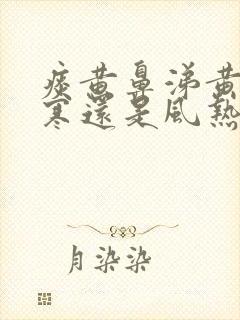 痰黄鼻涕黄
寒還是風熱
月染染